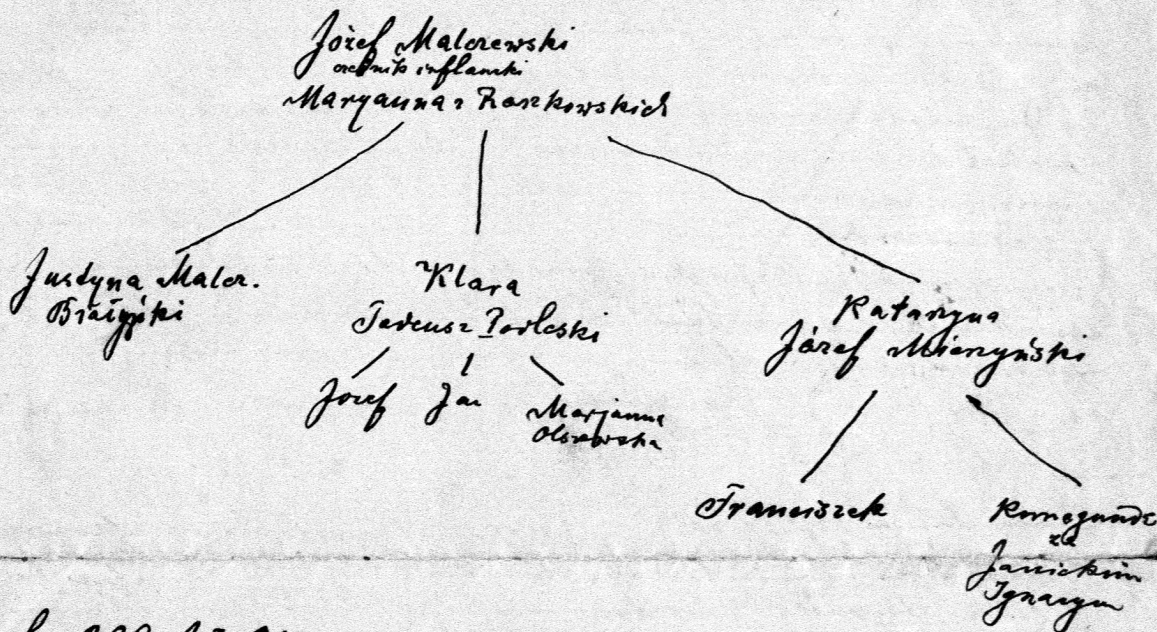 Józef Malczewski
cześnik inflancki
Maryanna z Roszkowskich
Justyna Malcz.
Klara
Tadeusz Podleski
Józef Jan Marjanna
Olszewska
Katarzyna
Józef Mierzyński
Franciszek
Kunegunda
za
Janickim
Ignacym